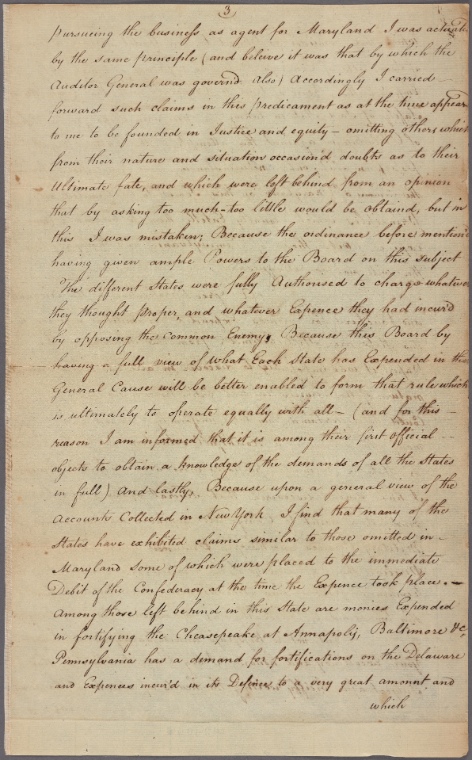 3
pursueing the business as agent for Maryland I was actuated
by the same principle (and beleive it was that by which the
Auditor General was govern'd also) Accordingly I carried
forward such claims in this predicament as at the time appear
to me to be founded in Justice and equity – omitting others which
from their nature and situation occasion'd doubts as to their
Ultimate fate, and which were left behind from an opinion
that by asking too much – too little would be obtained, but in
this I was mistaken; Because the ordinance before mention'd
having given ample Powers to the Board on this subject
The different States were fully Authorised to charge whatever
they thought proper, and whatever Expence they had incur'd
by opposing the Common Enemy, Because this Board by
having a full view of what Each State has Expended in the
General Cause will be better enabled to form that rule which
is ultimately to operate equally with all – (and for this –
reason I am informed that it is among their first official –
objects to obtain a knowledge of the demands of all the States
in full) And lastly, Because upon a general view of the
Accounts Collected in New York I find that many of the
States have exhibited claims similar to those omitted in –
Maryland some of which were placed to the immediate
Debit of the Confederacy at the time the Expence took place. –
Among those left behind in this State are monies Expended
in fortifying the Cheasepeake at Annapolis, Baltimore &c
Pennsylvania has a demand for fortifications on the Delaware
and Expences incur'd in its Defence to a very great amount and
which